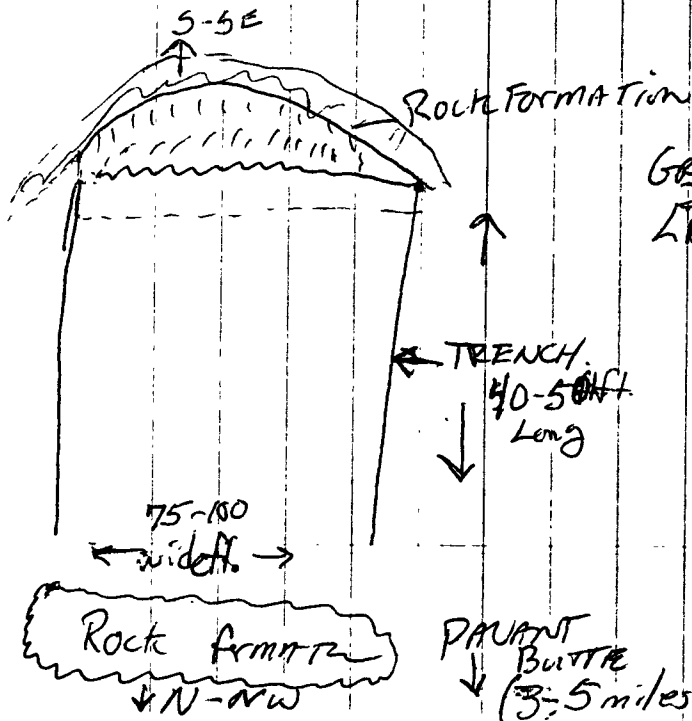 S-SE
Rock FormaTion
TRENCH.
40-50 ft.
Long
75-100
wide ft.
Rock
N-NW
PAVANT
BUTTE
(3-5 miles